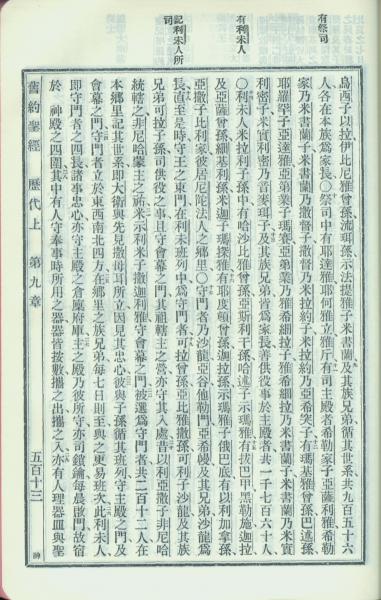 有祭司
有利未人
記利未人所司
烏西子以拉伊比尼雅曾孫流珥孫示法提雅子米書蘭及其族兄弟循其世系共九百五十六
人各在本族爲家長○祭司中有耶達雅耶何雅立雅斤有司主殿者希勒家子亞薩利雅希勒
家乃米書蘭子米書蘭乃撒督子撒督乃米拉約子米拉約乃亞希突子有瑪基雅曾孫巴述孫
耶羅罕子亞達雅亞第業子瑪賽亞第業乃雅希細拉子雅希細拉乃米書蘭子米書蘭乃米實
利密子米實利密乃音麥珥子及其族兄弟皆爲家長善供役事於主殿者共一千七百六十人
○利未人米拉利子孫中有哈沙比雅曾孫亞斯利干孫哈述子示瑪雅有拔巴甲黑勒施迦拉
及亞薩曾孫細基利孫米迦子瑪探雅有耶度頓曾孫迦拉孫示瑪雅子俄巴底有以利加拿孫
亞撒子比利家彼居尼陀法人之鄉里○守門者乃沙龍亞谷他勒門亞希幔及其兄弟沙龍爲
長直至是時守王之東門在利未班列中爲守門者可拉曾孫亞比雅撒孫可利子沙龍及其族
兄弟可拉子孫司供役之事且守會幕之門其祖轄主之營亦守其入處昔以利亞撒子非尼哈
統轄之非尼哈蒙主之祐米示利米子撒迦利雅守會幕之門被選爲守門者共二百十二人在
本鄉里記其世系即大衛與先見撒母耳所立因見其忠心彼與子孫循其班列守主殿之門及
會幕之門守門者立於東西南北四方在鄉里之族兄弟每七日則至與之更易班次此利未人
即守門者之四長諸事忠心亦守主殿之倉廒府庫主之殿乃彼所守亦司鎖鑰每晨啟門故宿
於 神殿之四圍其中有人守奉事時所用之器器皆按數攜之出攜之入亦有人理器皿與聖
舊約聖經 歷代上 第九章 五百十三